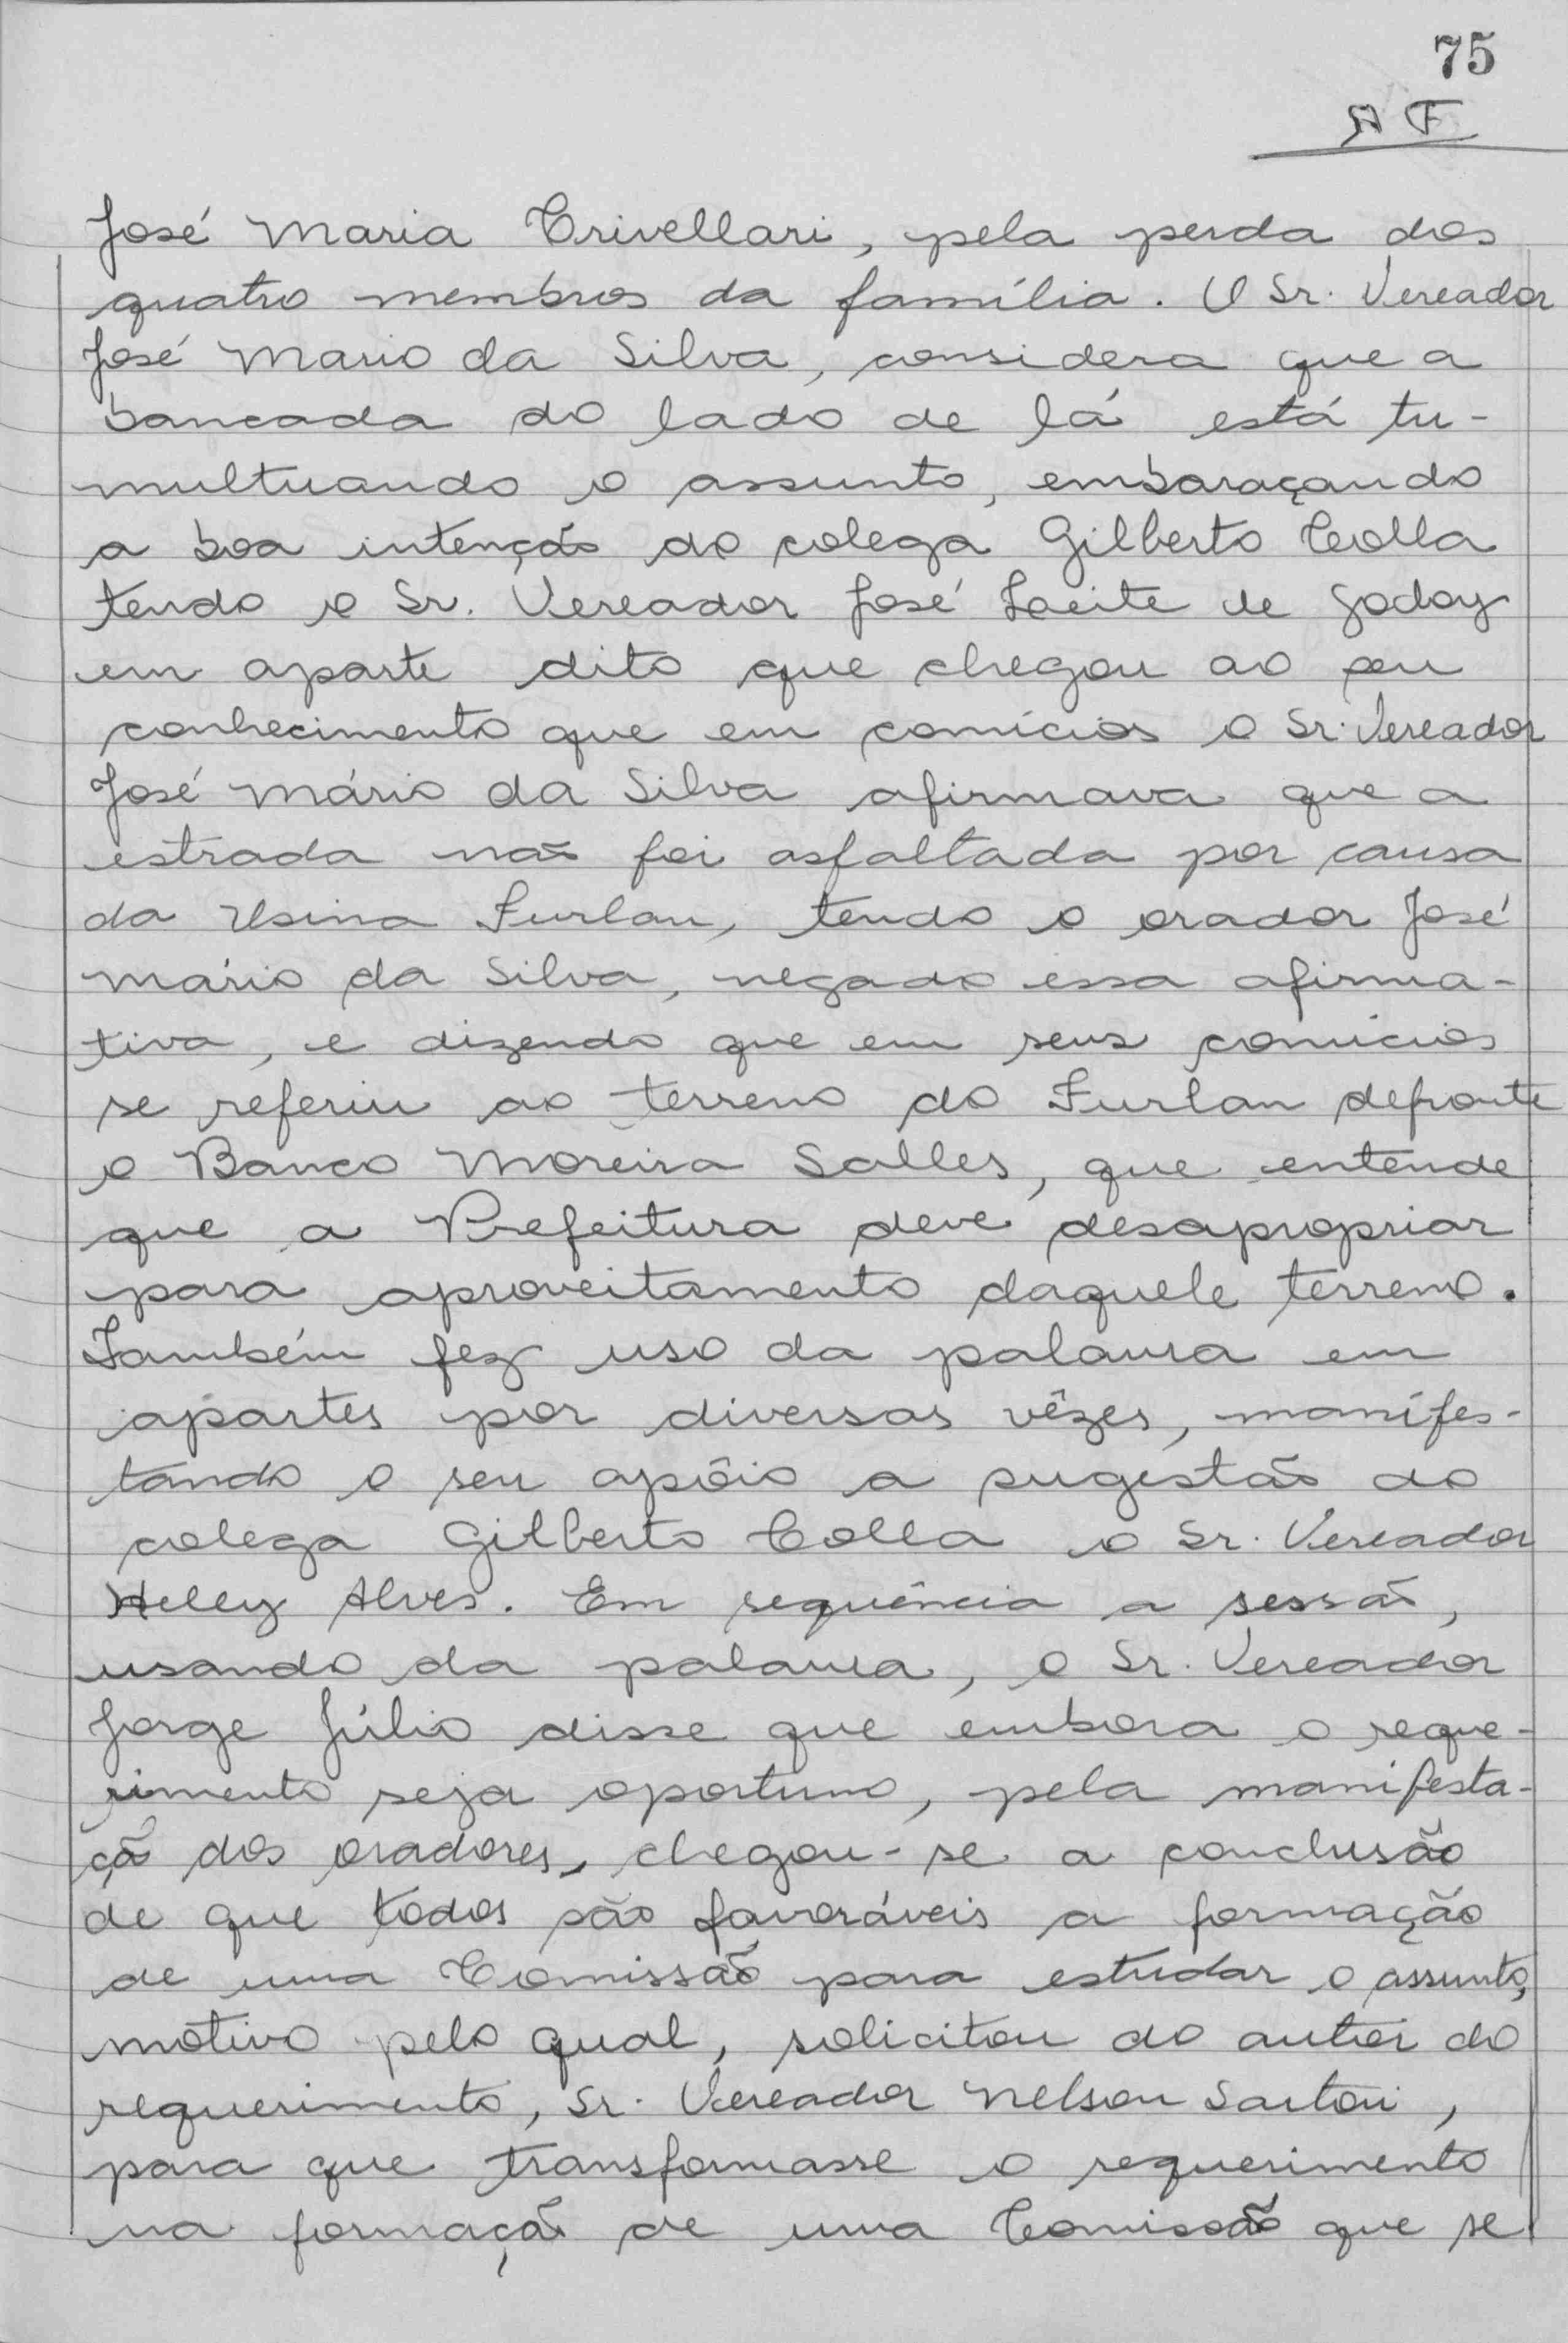 75
AF
José Maria Crivellari, pela perda dos
quatro membros da família. O Sr. Vereador
José Mario da Silva, considera que a
bancada do lado de lá está tu-
multuando o assunto, embaraçando
a boa intenção do colega Gilberto Colla
tendo o Sr. Vereador José Leite de Godoy
em aparte dito que chegou ao seu
conhecimento que em comícios o Sr. Vereador
José Mário da Silva afirmava que a
estrada não foi asfaltada por causa
da Usina Furlan, tendo o orador José
Mário da Silva, negado essa afirma-
tiva, e dizendo que em seus comícios
se referiu ao terreno do Furlan defronte
o Banco Moreira Salles, que entende
que a Prefeitura deve desapropriar
para aproveitamento daquele terreno.
Também fez uso da palavra em
apartes por diversas vêzes, manifes-
tando o seu apôio a sugestão do
colega Gilberto Colla o Sr. Vereador
Helly Alves. Em sequência a sessão,
usando da palavra, o Sr. Vereador
Jorge Júlio disse que embora o reque-
rimento seja oportuno, pela manifesta-
ção dos oradores, chegou-se a conclusão
de que todos são favoráveis a formação
de uma Comissão para estudar o assunto,
motivo pelo qual, solicitou do autor do
requerimento, Sr. Vereador Nelson Sartori,
para que transformasse o requerimento
na formação de uma Comissão que se